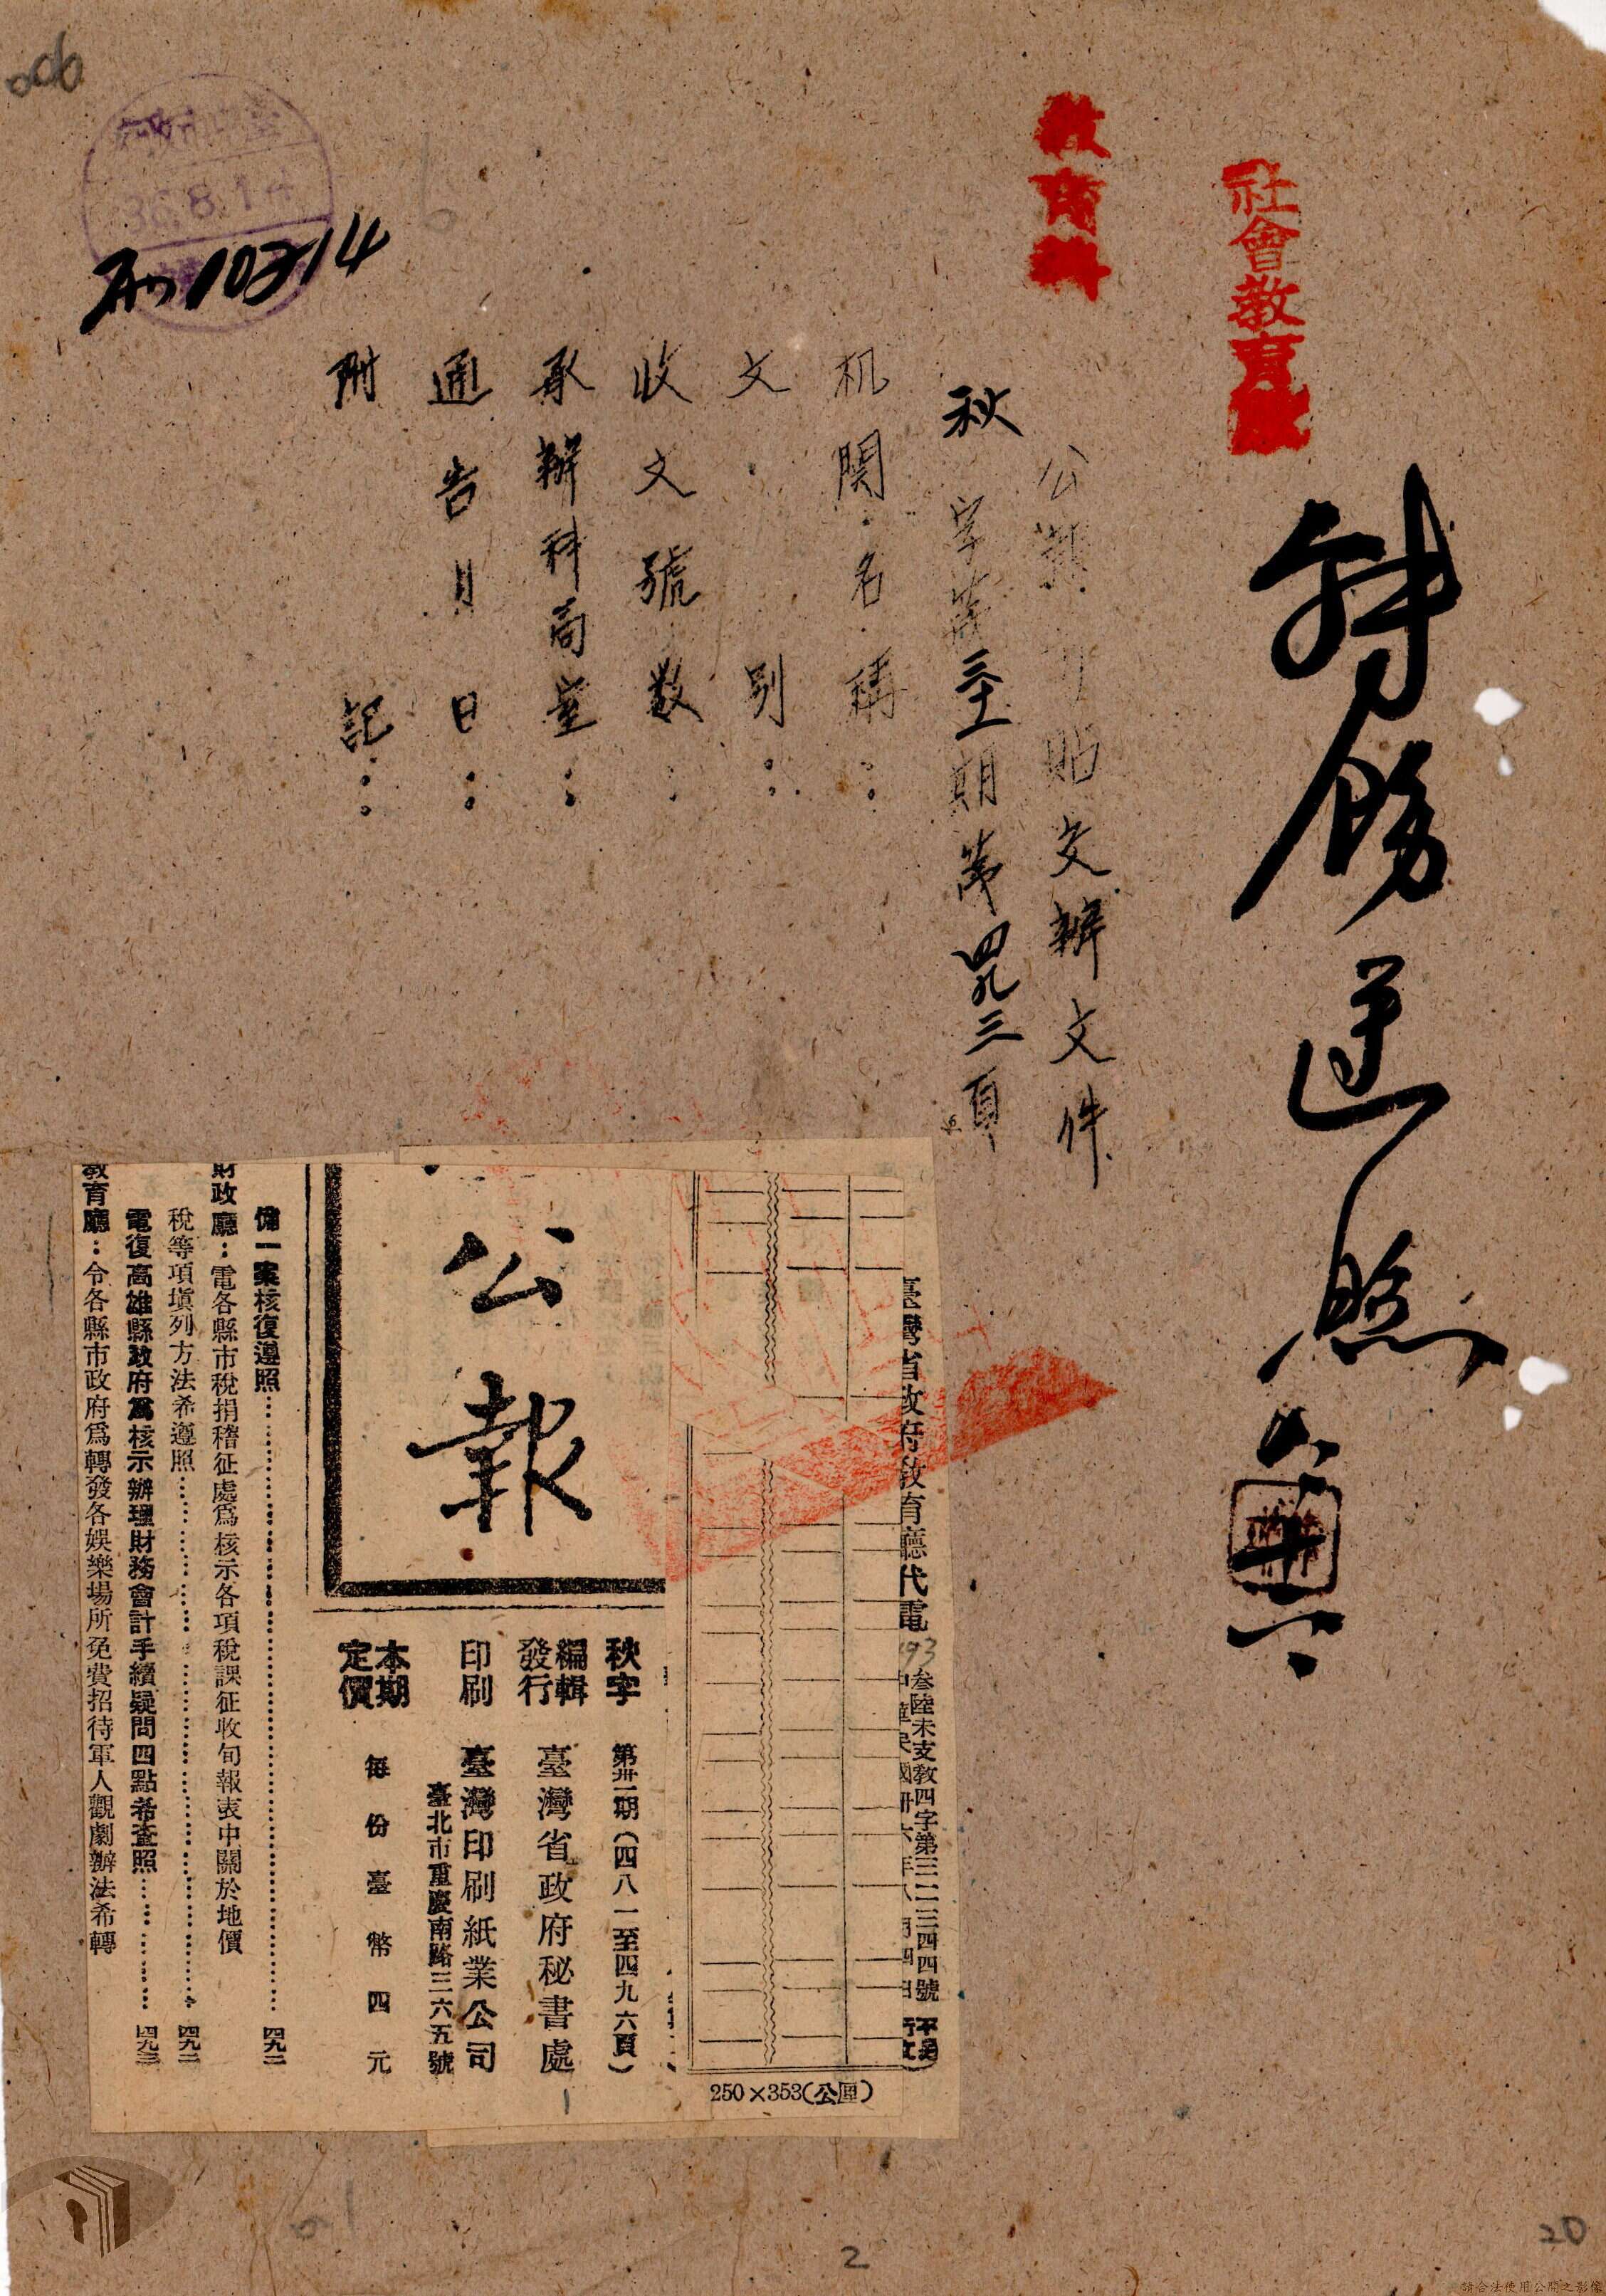 社會教育股
教育科
轉飭遵照
公報刊貼交辦文件
秋字第三十一期第四九三頁
机關名稱：
文別：
收文號數：
承辦科局室：
通告月日：
附記：
36.8.14
10314
臺灣省政府教育廳代電
叁陸未支教四字第三二三四四號
不另行文)
250×353(公厘)
公報
秋字 第卅一期(四八一至四九六頁)
編輯發行 臺灣省政府秘書處
印刷 臺灣印刷紙業公司
臺北市重慶南路三六五號
本期定價 每份臺幣四元
備一案核復遵照……四九二
財政廳：電各縣市稅捐稽征處爲核示各項稅課征收旬報表中關於地價
稅等項填列方法希遵照……四九二
電復高雄縣政府爲核示辦理財務會計手續疑問四點希查照……四九三
教育廳：令各縣市政府爲轉發各娛樂場所免費招待軍人觀劇辦法希轉
2
20
請合法使用公開之影像